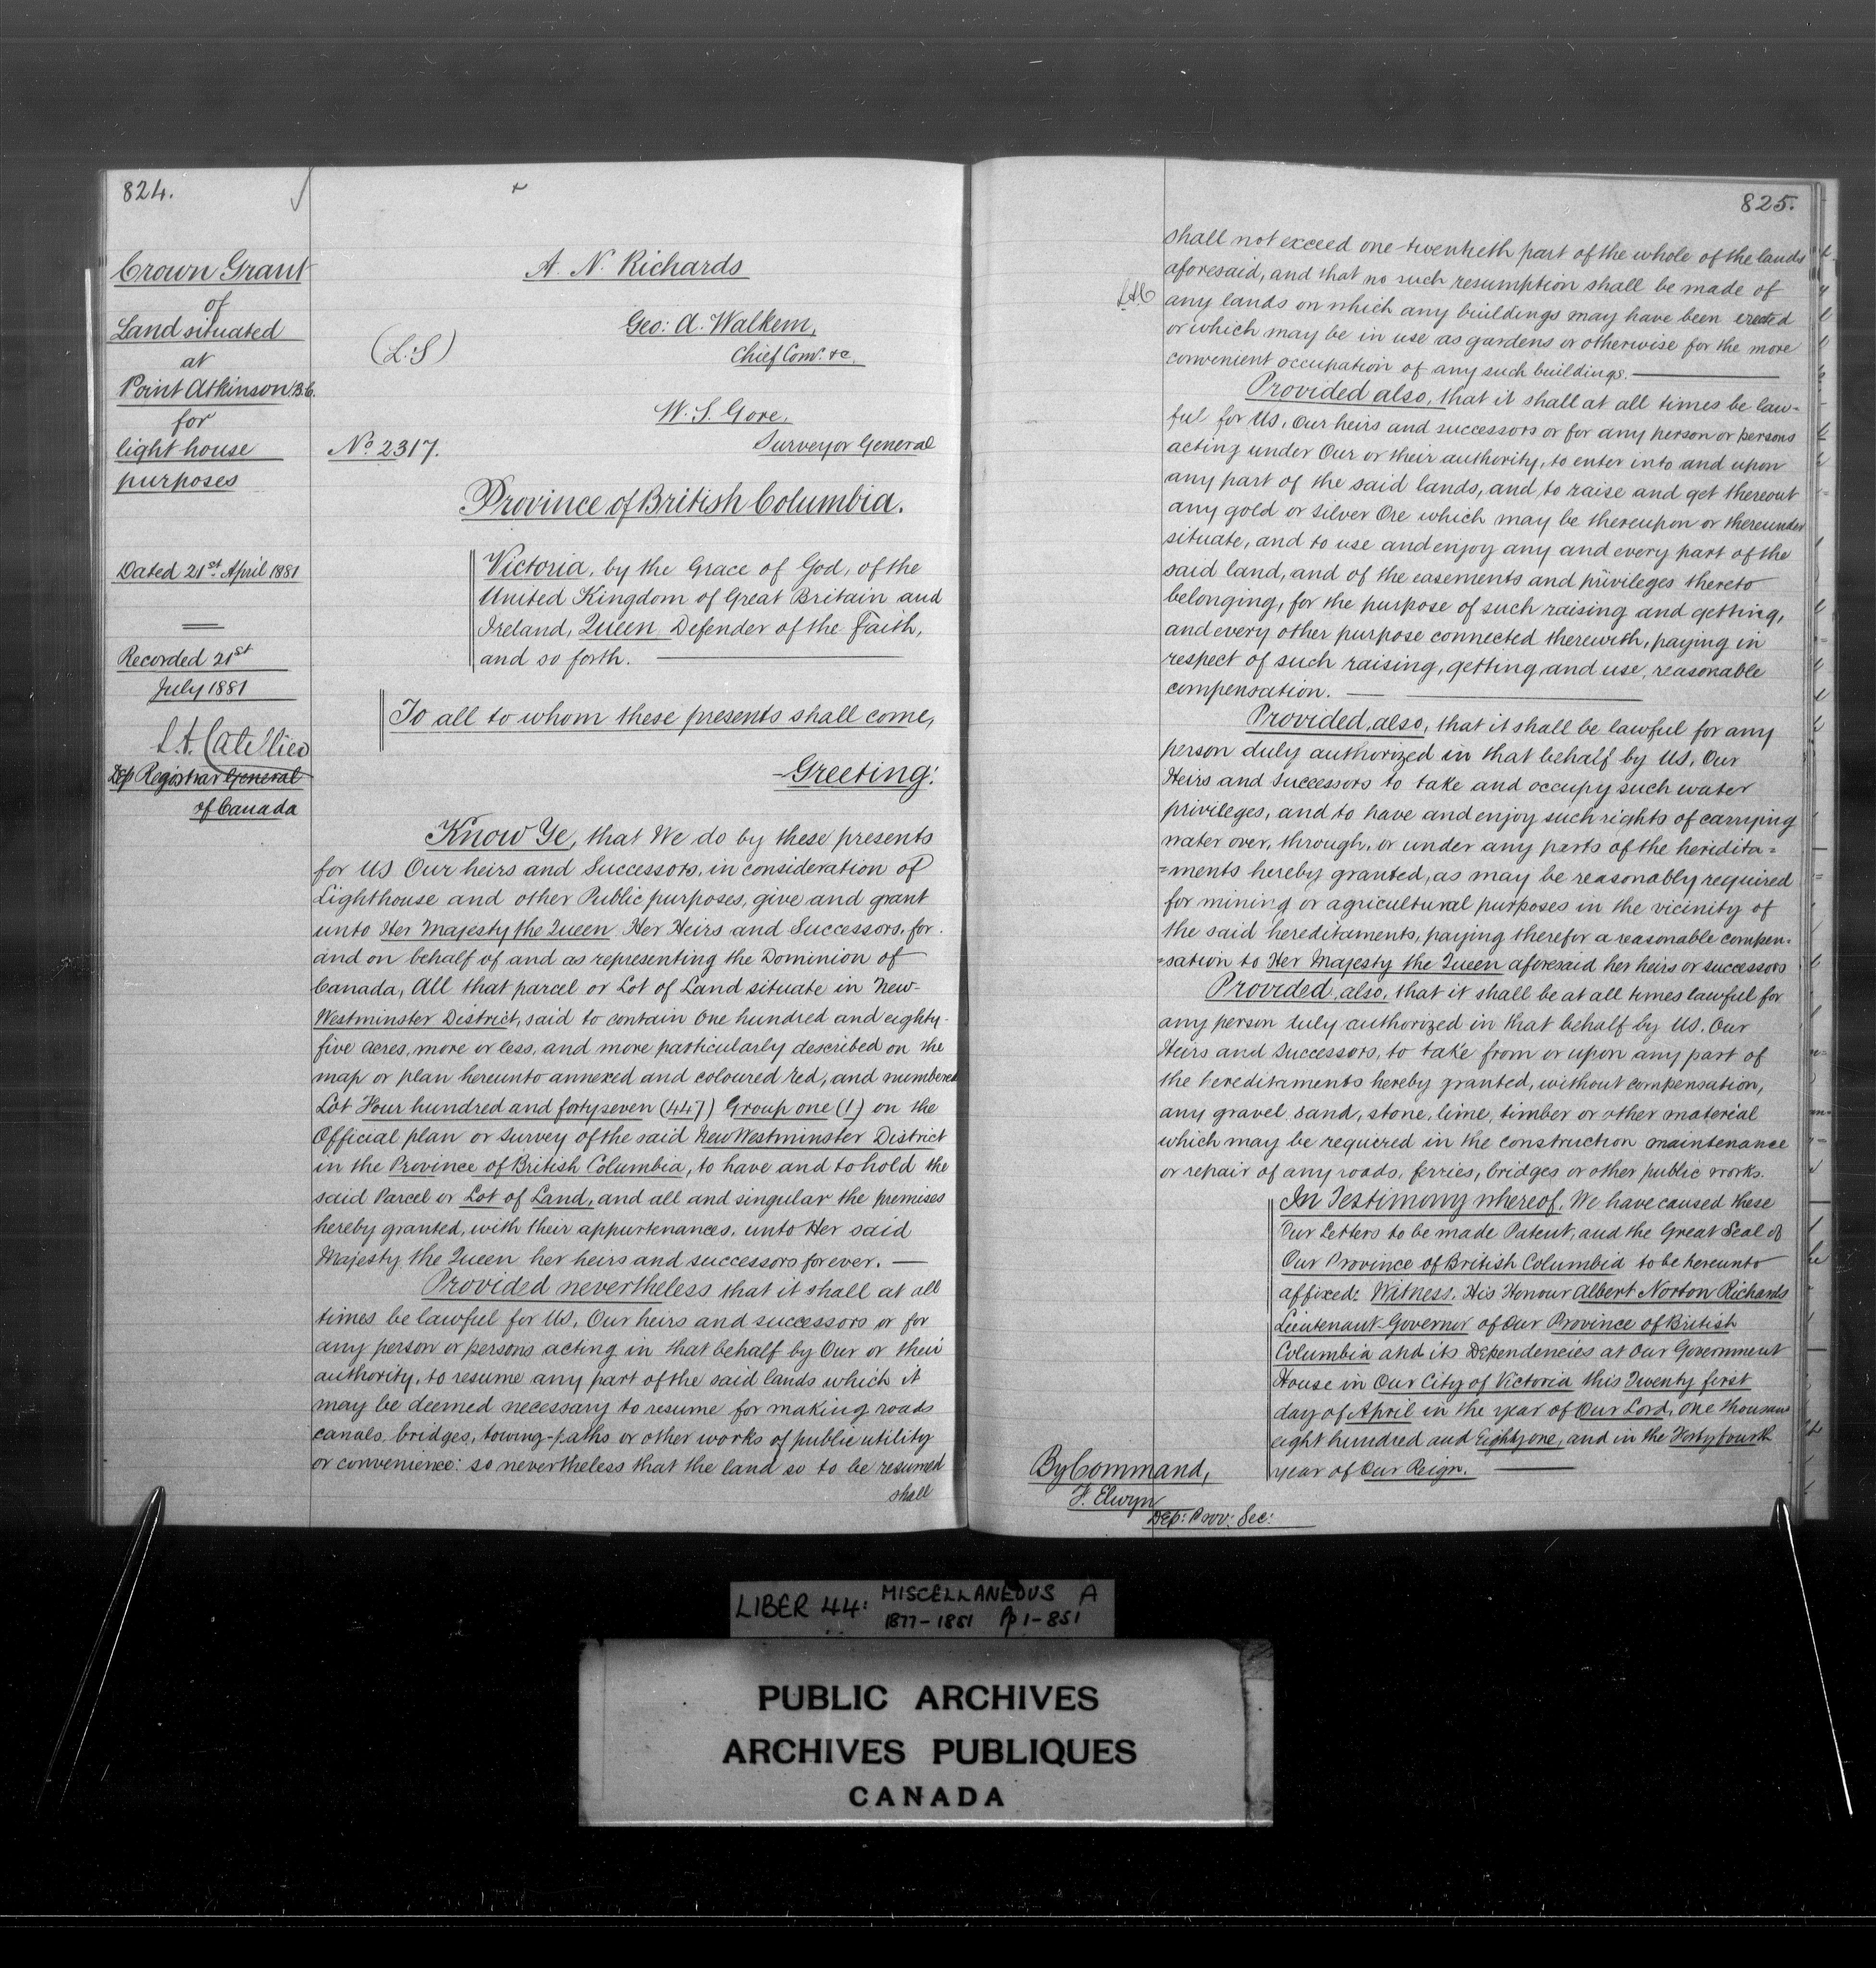 824.
Crown Grant
of
Land situated
at
Point Atkinson B.C.
for
light house
purposes
Dated 21st April 1881
Recorded 21st
July 1881
L.A. Catellier
Dep Registrar General
of Canada
A. N. Richards
(L.S)
Geo: A. Walkem,
Chief Comr. &c.
W. S. Gore,
Surveyor General
No 2317.
Province of British Columbia.
Victoria, by the Grace of God, of the
United Kingdom of Great Britain and
Ireland, Queen Defender of the Faith,
and so forth.
To all to whom these presents shall come,
Greeting:
Know Ye, that We do by these presents
for US Our heirs and Successors, in consideration of
Lighthouse and other Public purposes, give and grant
unto Her Majesty the Queen Her Heirs and Successors, for
and on behalf of and as representing the Dominion of
Canada, All that parcel or Lot of Land situate in New-
Westminster District, said to contain One hundred and eighty-
five acres, more or less, and more particularly described on the
map or plan hereunto annexed and coloured red, and numbered
Lot Four hundred and forty seven (447) Group one (1) on the
Official plan or Survey of the said New Westminster District
in the Province of British Columbia, to have and to hold the
said Parcel or Lot of Land, and all and singular the premises
hereby granted, with their appurtenances, unto Her said
Majesty the Queen her heirs and successors forever.
Provided nevertheless that it shall at all
times be lawful for US, Our heirs and successors or for
any person or persons acting in that behalf by Our or their
authority, to resume any part of the said lands which it
may be deemed necessary to resume for making roads
canals, bridges, towing-paths or other works of public utility
or convenience: so nevertheless that the land so to be resumed
shall
825.
shall not exceed one twentieth part of the whole of the lands
aforesaid, and that no such resumption shall be made of
L.A.C
any lands on which any buildings may have been erected
or which may be in use as gardens or otherwise for the more
convenient occupation of any such buildings.
Provided also, that it shall at all times be law-
ful for US, Our heirs and successors or for any person or persons
acting under Our or their authority, to enter into and upon
any part of the said lands, and to raise and get thereout
any gold or silver Ore which may be thereupon or thereunder
situate, and to use and enjoy any and every part of the
said land, and of the easements and privileges thereto
belonging, for the purpose of such raising and getting,
and every other purpose connected therewith, paying in
respect of such raising, getting, and use, reasonable
compensation.
Provided, also, that it shall be lawful for any
person duly authorized in that behalf by US, Our
Heirs and Successors to take and occupy such water
privileges, and to have and enjoy such rights of carrying
water over, through, or under any parts of the heredita=
=ments hereby granted, as may be reasonably required
for mining or agricultural purposes in the vicinity of
the said hereditaments, paying therefor a reasonable compen=
=sation to Her Majesty the Queen aforesaid her heirs or successors
Provided, also, that it shall be at all times lawful for
any person duly authorized in that behalf by US, Our
Heirs and Successors, to take from or upon any part of
the hereditaments hereby granted, without compensation,
any gravel, sand, stone, lime, timber or other material
which may be required in the construction maintenance
or repair of any roads, ferries, bridges or other public works.
In Testimony whereof, We have caused these
Our Letters to be made Patent, and the Great Seal of
Our Province of British Columbia to be hereunto
affixed: Witness, His Honour Albert Norton Richards
Lieutenant-Governor of Our Province of British
Columbia and its Dependencies at Our Government
House in Our City of Victoria this Twenty first
day of April in the year of Our Lord, one thousand
eight hundred and Eighty one, and in the Forty fourth
year of Our Reign.
By Command,
F. Elwyn
Dep: Prov: Sec:
LIBER 44: MISCELLANEOUS A
1877-1881 Pp 1-851
PUBLIC ARCHIVES
ARCHIVES PUBLIQUES
CANADA